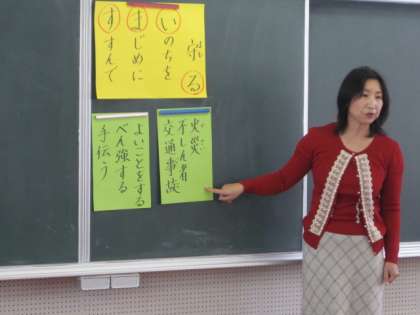 守る
いのちを
まじめに
すすんで
火災
不しん者
交通事故
よいことをする
べん強する
手伝う